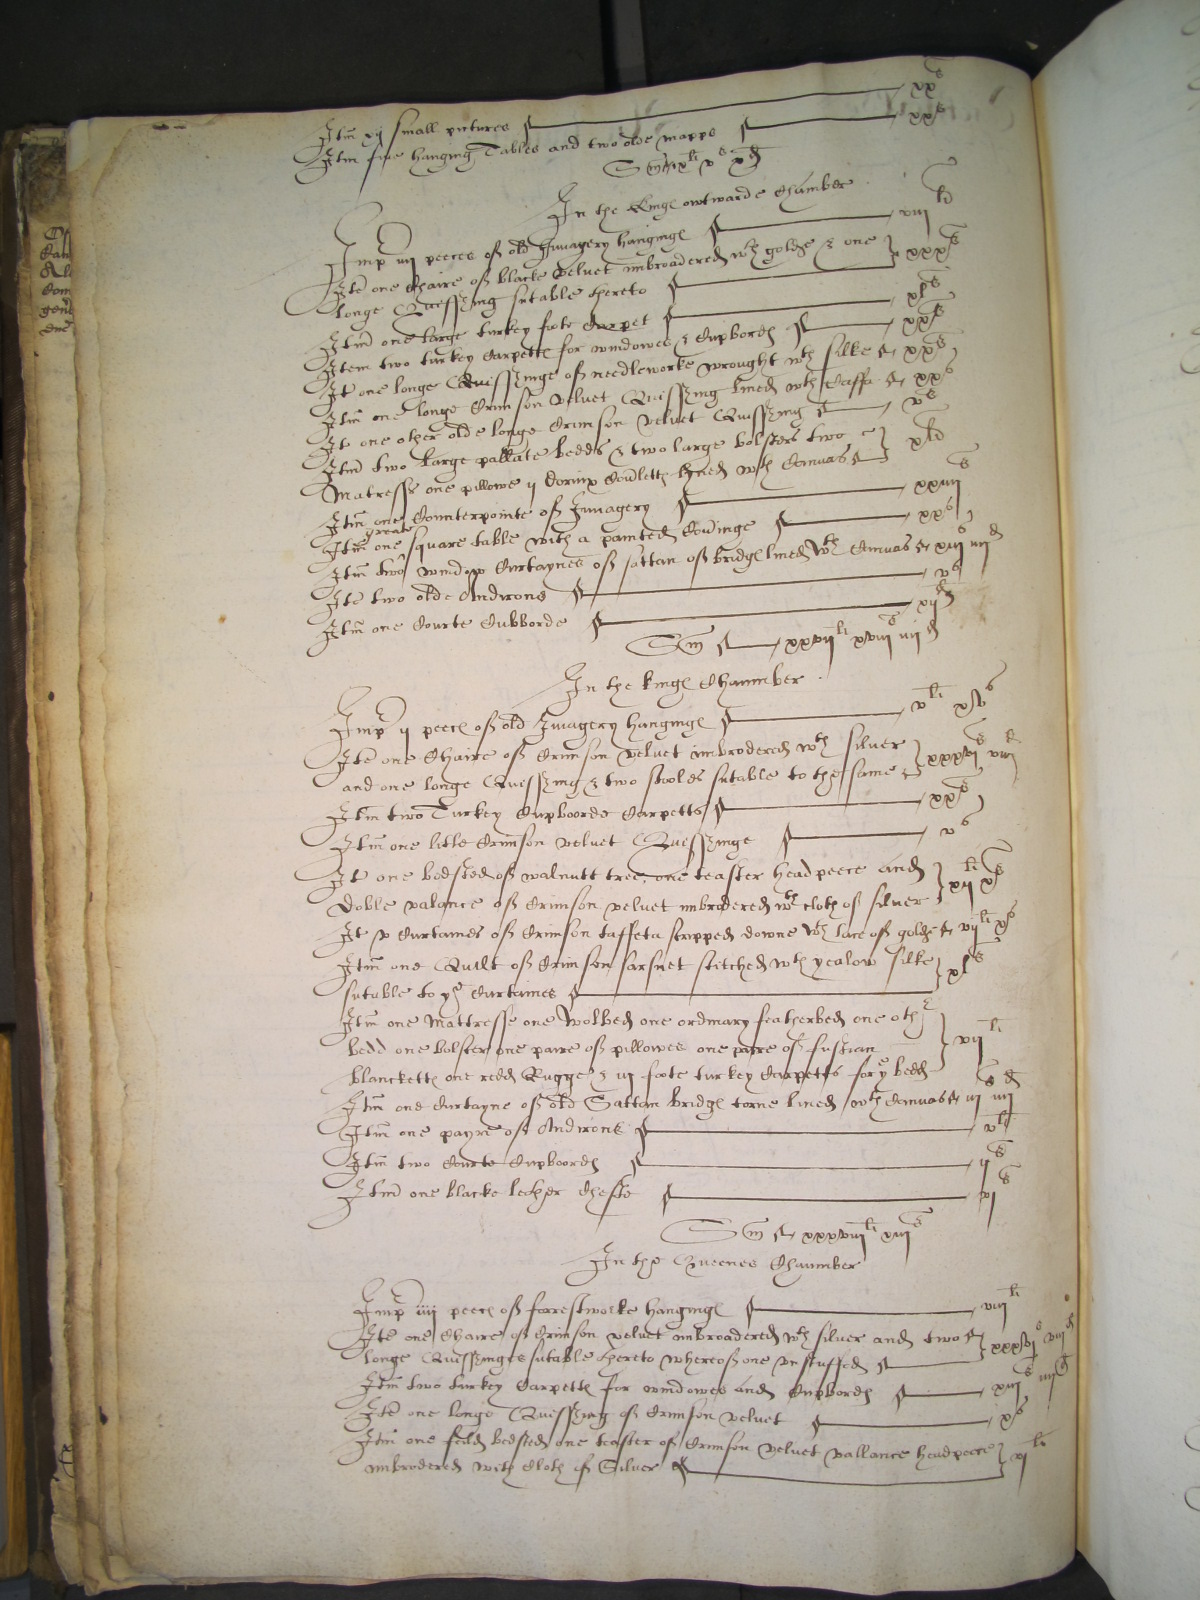 Itm̄ xij small pictures — xxs
Itm five hanging Tables and two olde mapps — xxs
Sm̄ li vs xd
In the Kings owtwarde Chamber
Imp̄ iiij peeces of old Imagery hangings — viijli
Itē one Chaire of blacke velvet imbroadered wth golde & one
longe Quesshing sutable thereto — xxxs
Itm̄ one large turkey foote Carpet — xls
Item two turkey Carpetts for windowes & Cupbords — xxs
It one longe Quesshinge of needleworke wrought wth silke — xxs
Itm̄ one longe Crimson velvet Quesshing lined wth Taffa — xxs
It one other olde longe Crimson velvet Quisshing — vs
Itm̄ two large pallate bedds & two large bolsters two
Matresses one pillowe ij Cornix Cov̄letts lyned wth Canvas — xli
Itm̄ one Counterpointe of Imagery — xxiiijs
Itm̄ one greate square table with a painted Cov̄inge — xxs
Itm̄ two window Curtaynes of sattan of bridgs lined wth Canvas — xiijs iiijd
Itē two olde Andirons — vs
Itm̄ one Courte Cubborde — xijd
Sm̄ — xxvijli xviijs iiijd
In the Kings Chamber
Imp̄ ij peecs of old Imagery hangings — vli xvs
Itē one Chaire of Crimson velvet imbrodered wth silver
and one longe Quesshing & two stooles sutable to the same — xxxvjs viijd
Itm̄ two Turkey Cupboorde Carpetts — xxs
Itm̄ one litle Crimson velvet Quesshinge — vs
It one bedsted of walnutt tree, one teaster headpeece and
doble valance of Crimson velvet imbrodered wth cloth of silver — xijli xs
It v Curtaines of Crimson taffeta stripped downe wth lace of golde — vijli xs
Itm̄ one Quilt of Crimson sarsnet stitched wth yealow silke
sutable to ye Curtaines — xls
Itm̄ one Mattresse one Wolbed one ordinary featherbed one oth̄
bedd one bolster one paire of pillowes one paire of fustian
blancketts one redd Rugge & iij foote turkey Carpetts for ye bedd — vijli
Itm̄ one Curtayne of old Sattan bridgs torne lined wth Canvas — iijs iiijd
Itm̄ one payre of Andirons — vs
Itm̄ two Courte Cupboords — ijs
Itm̄ one blacke lether Cheste — vjs
Sm̄ — xxxviijli xiijs
In the Queenes Chaumber
Imp̄ iiij peecs of forrestworke hangings — viijli
Itē one Chaire of Crimson velvet imbroadered wth silver and two
longe Quisshinges sutable thereto whereof one unstuffed — xxxvjs viijd
Itm̄ two turkey Carpetts for windowes and Cupbords — xiijs iiijd
Itē one longe Quesshing of Crimson velvet — xs
Itm̄ one feild bedsted one teaster of Crimson velvet vallance headpeece
imbrodered with Cloth of Silver — vjli